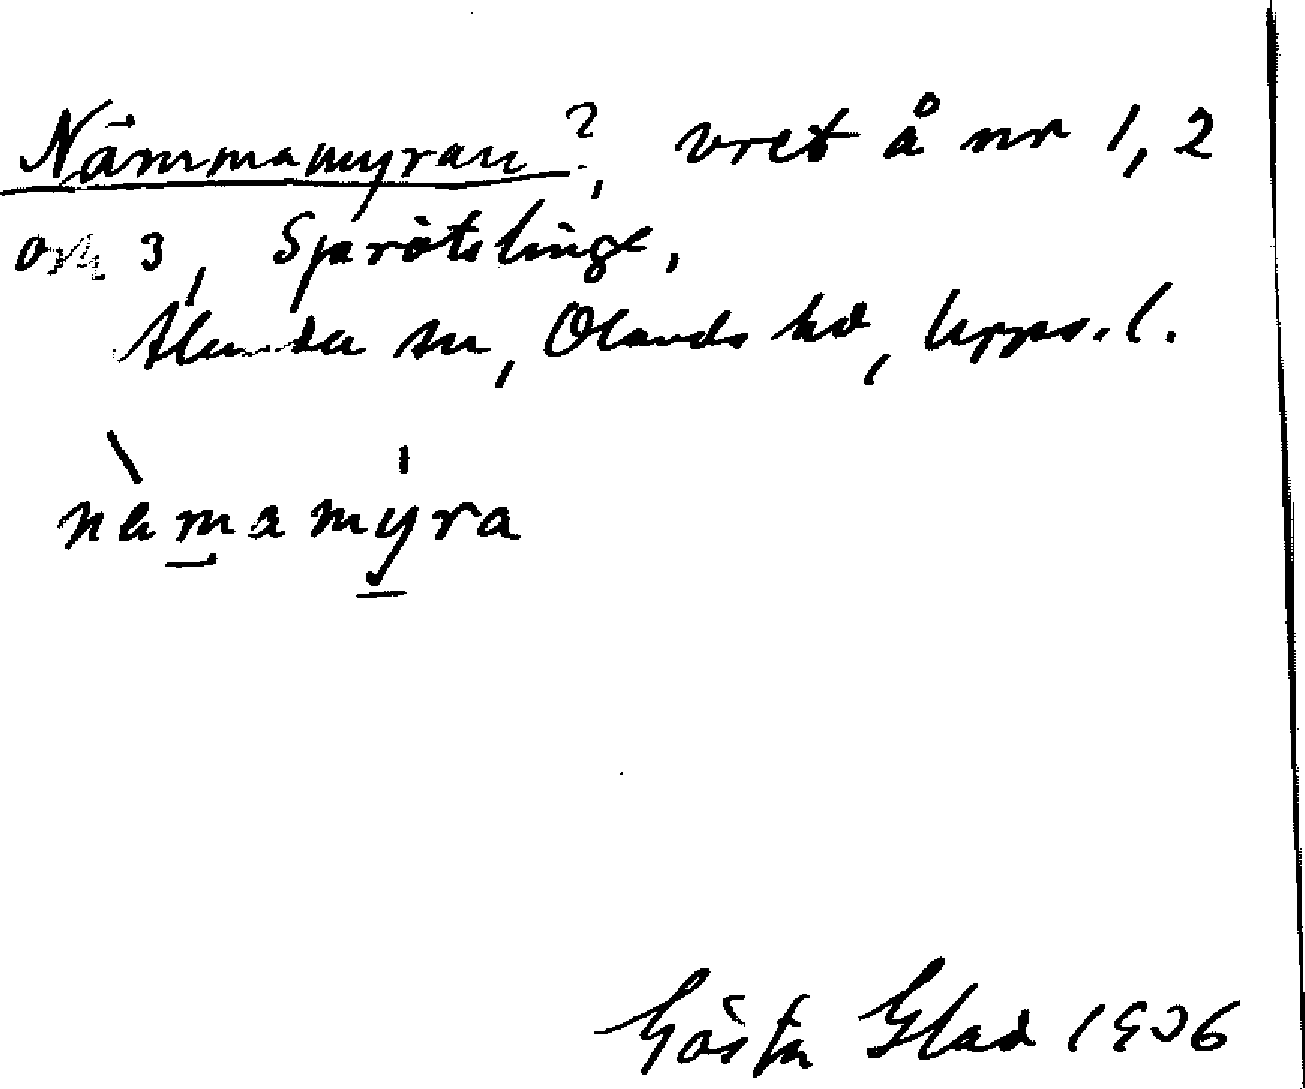 Nämmamyran?, vret å nr 1, 2
och 3, Sprötslinge,
Alunda sn, Olands hd, Upps. l.
nämamýra
Gösta Glad 1936